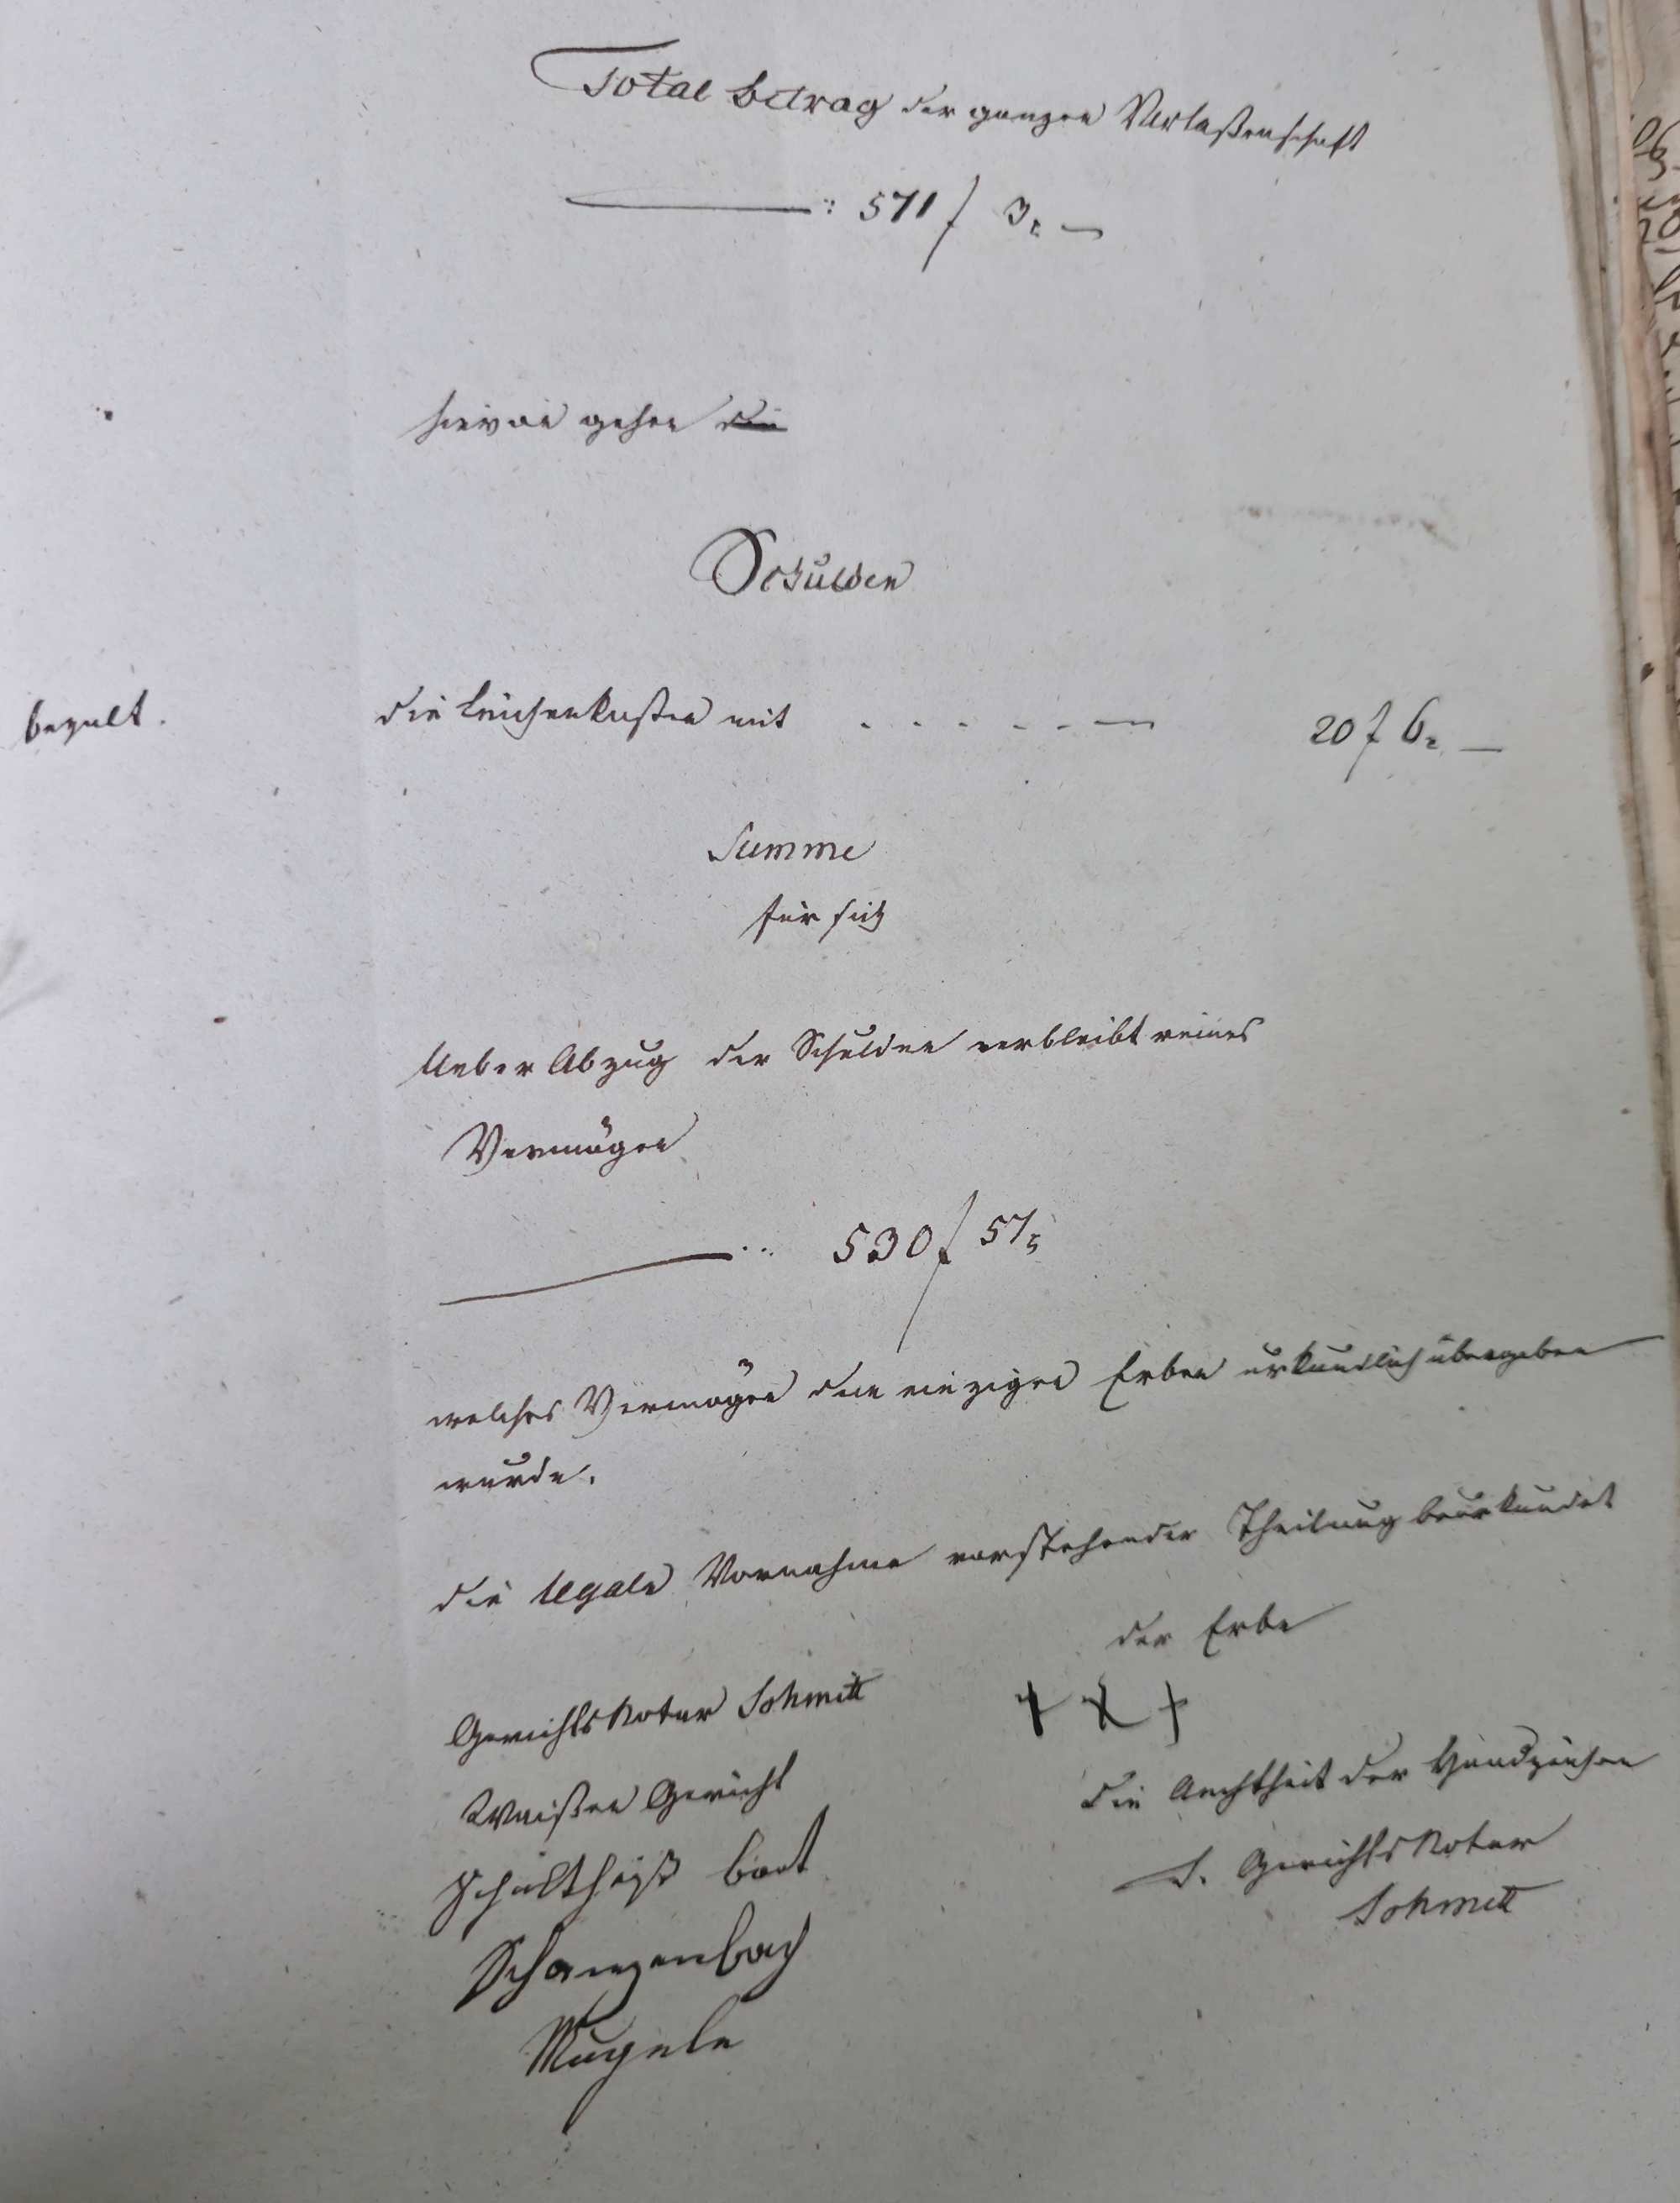 Total Betrag der ganzen Verlaßenschaft
: 571 f 3x —
hievon gehen die
Schulden
bezalt. die Leichenkosten mit . . . . . . — 20 f 6x. —
Summe
für sich
Ueber Abzug der Schulden verbleibt reines
Vermögen
530 f 57x
welches Vermögen dem einzigen Erben urkundlich übergeben
wurde.
die legale Vornahme vorstehender Theilung beurkundet
der Erbe
Gerichts Notar Schmitt
+ X +
Waißen Gericht
die Aechtheit der Handzeichen
Schultheiß
t. Gerichts Notar
Schmitt
Schanzenbach
Mugele